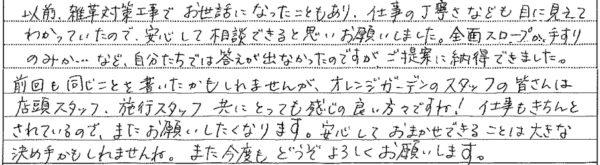 以前、雑草対策工事でお世話になったこともあり、仕事の丁寧さなども目に見えて
わかっていたので、安心して相談できると思いお願いしました。全面スロープか、手すり
のみか…など、自分たちでは答えが出なかったのですがご提案に納得できました。
前回も同じことを書いたかもしれませんが、オレンジガーデンのスタッフの皆さんは
店頭スタッフ、施行スタッフ 共にとっても感じの良い方々ですね!仕事もきちんと
されているので、またお願いしたくなります。安心しておまかせできることは大きな
決め手かもしれませんね。また今度もどうぞよろしくお願いします。